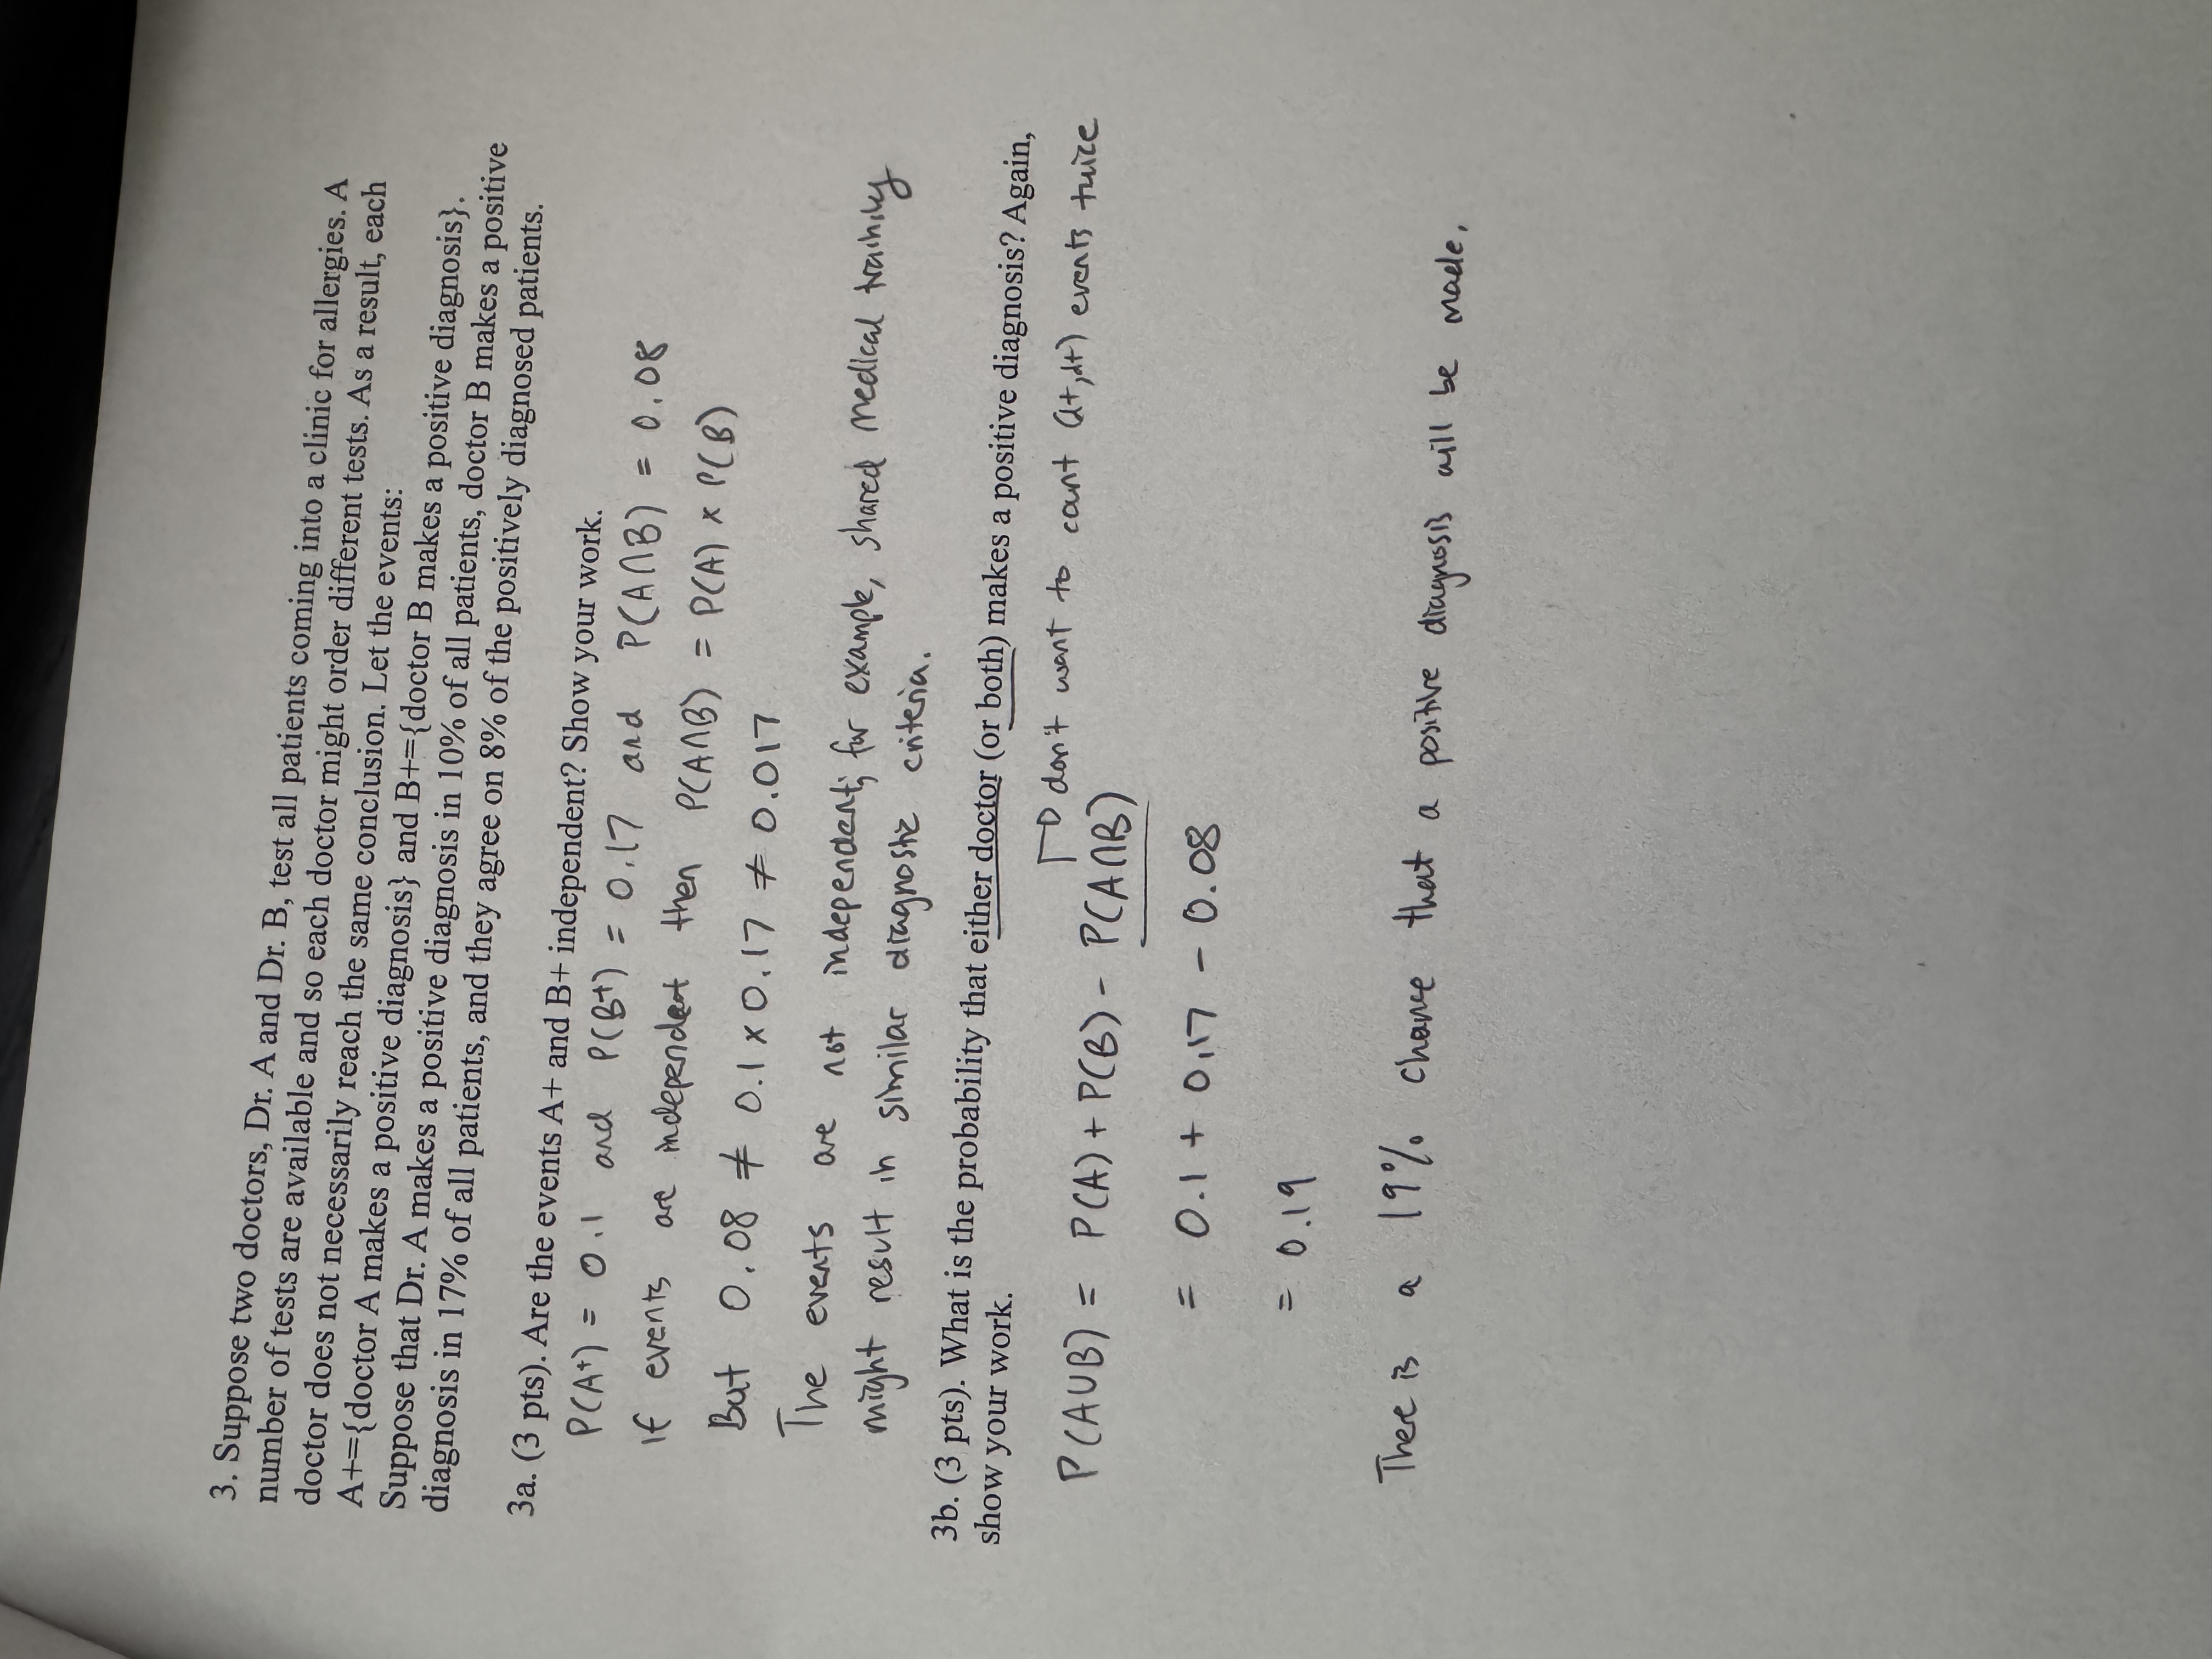 3. Suppose two doctors, Dr. A and Dr. B, test all patients coming into a clinic for allergies. A
number of tests are available and so each doctor might order different tests. As a result, each
doctor does not necessarily reach the same conclusion. Let the events:
A+={doctor A makes a positive diagnosis} and B+={doctor B makes a positive diagnosis}.
Suppose that Dr. A makes a positive diagnosis in 10% of all patients, doctor B makes a positive
diagnosis in 17% of all patients, and they agree on 8% of the positively diagnosed patients.
3a. (3 pts). Are the events A+ and B+ independent? Show your work.
P(A⁺) = 0.1 and P(B⁺) = 0.17 and P(A∩B) = 0.08
If events are independent then P(A∩B) = P(A) × P(B)
But 0.08 ≠ 0.1 × 0.17 ≠ 0.017
The events are not independent; for example, shared medical training
might result in similar diagnostic criteria.
3b. (3 pts). What is the probability that either doctor (or both) makes a positive diagnosis? Again,
show your work.
don't want to count (d+,d+) events twice
P(A∪B) = P(A) + P(B) - P(A∩B)
= 0.1 + 0.17 - 0.08
= 0.19
There is a 19% chance that a positive diagnosis will be made.